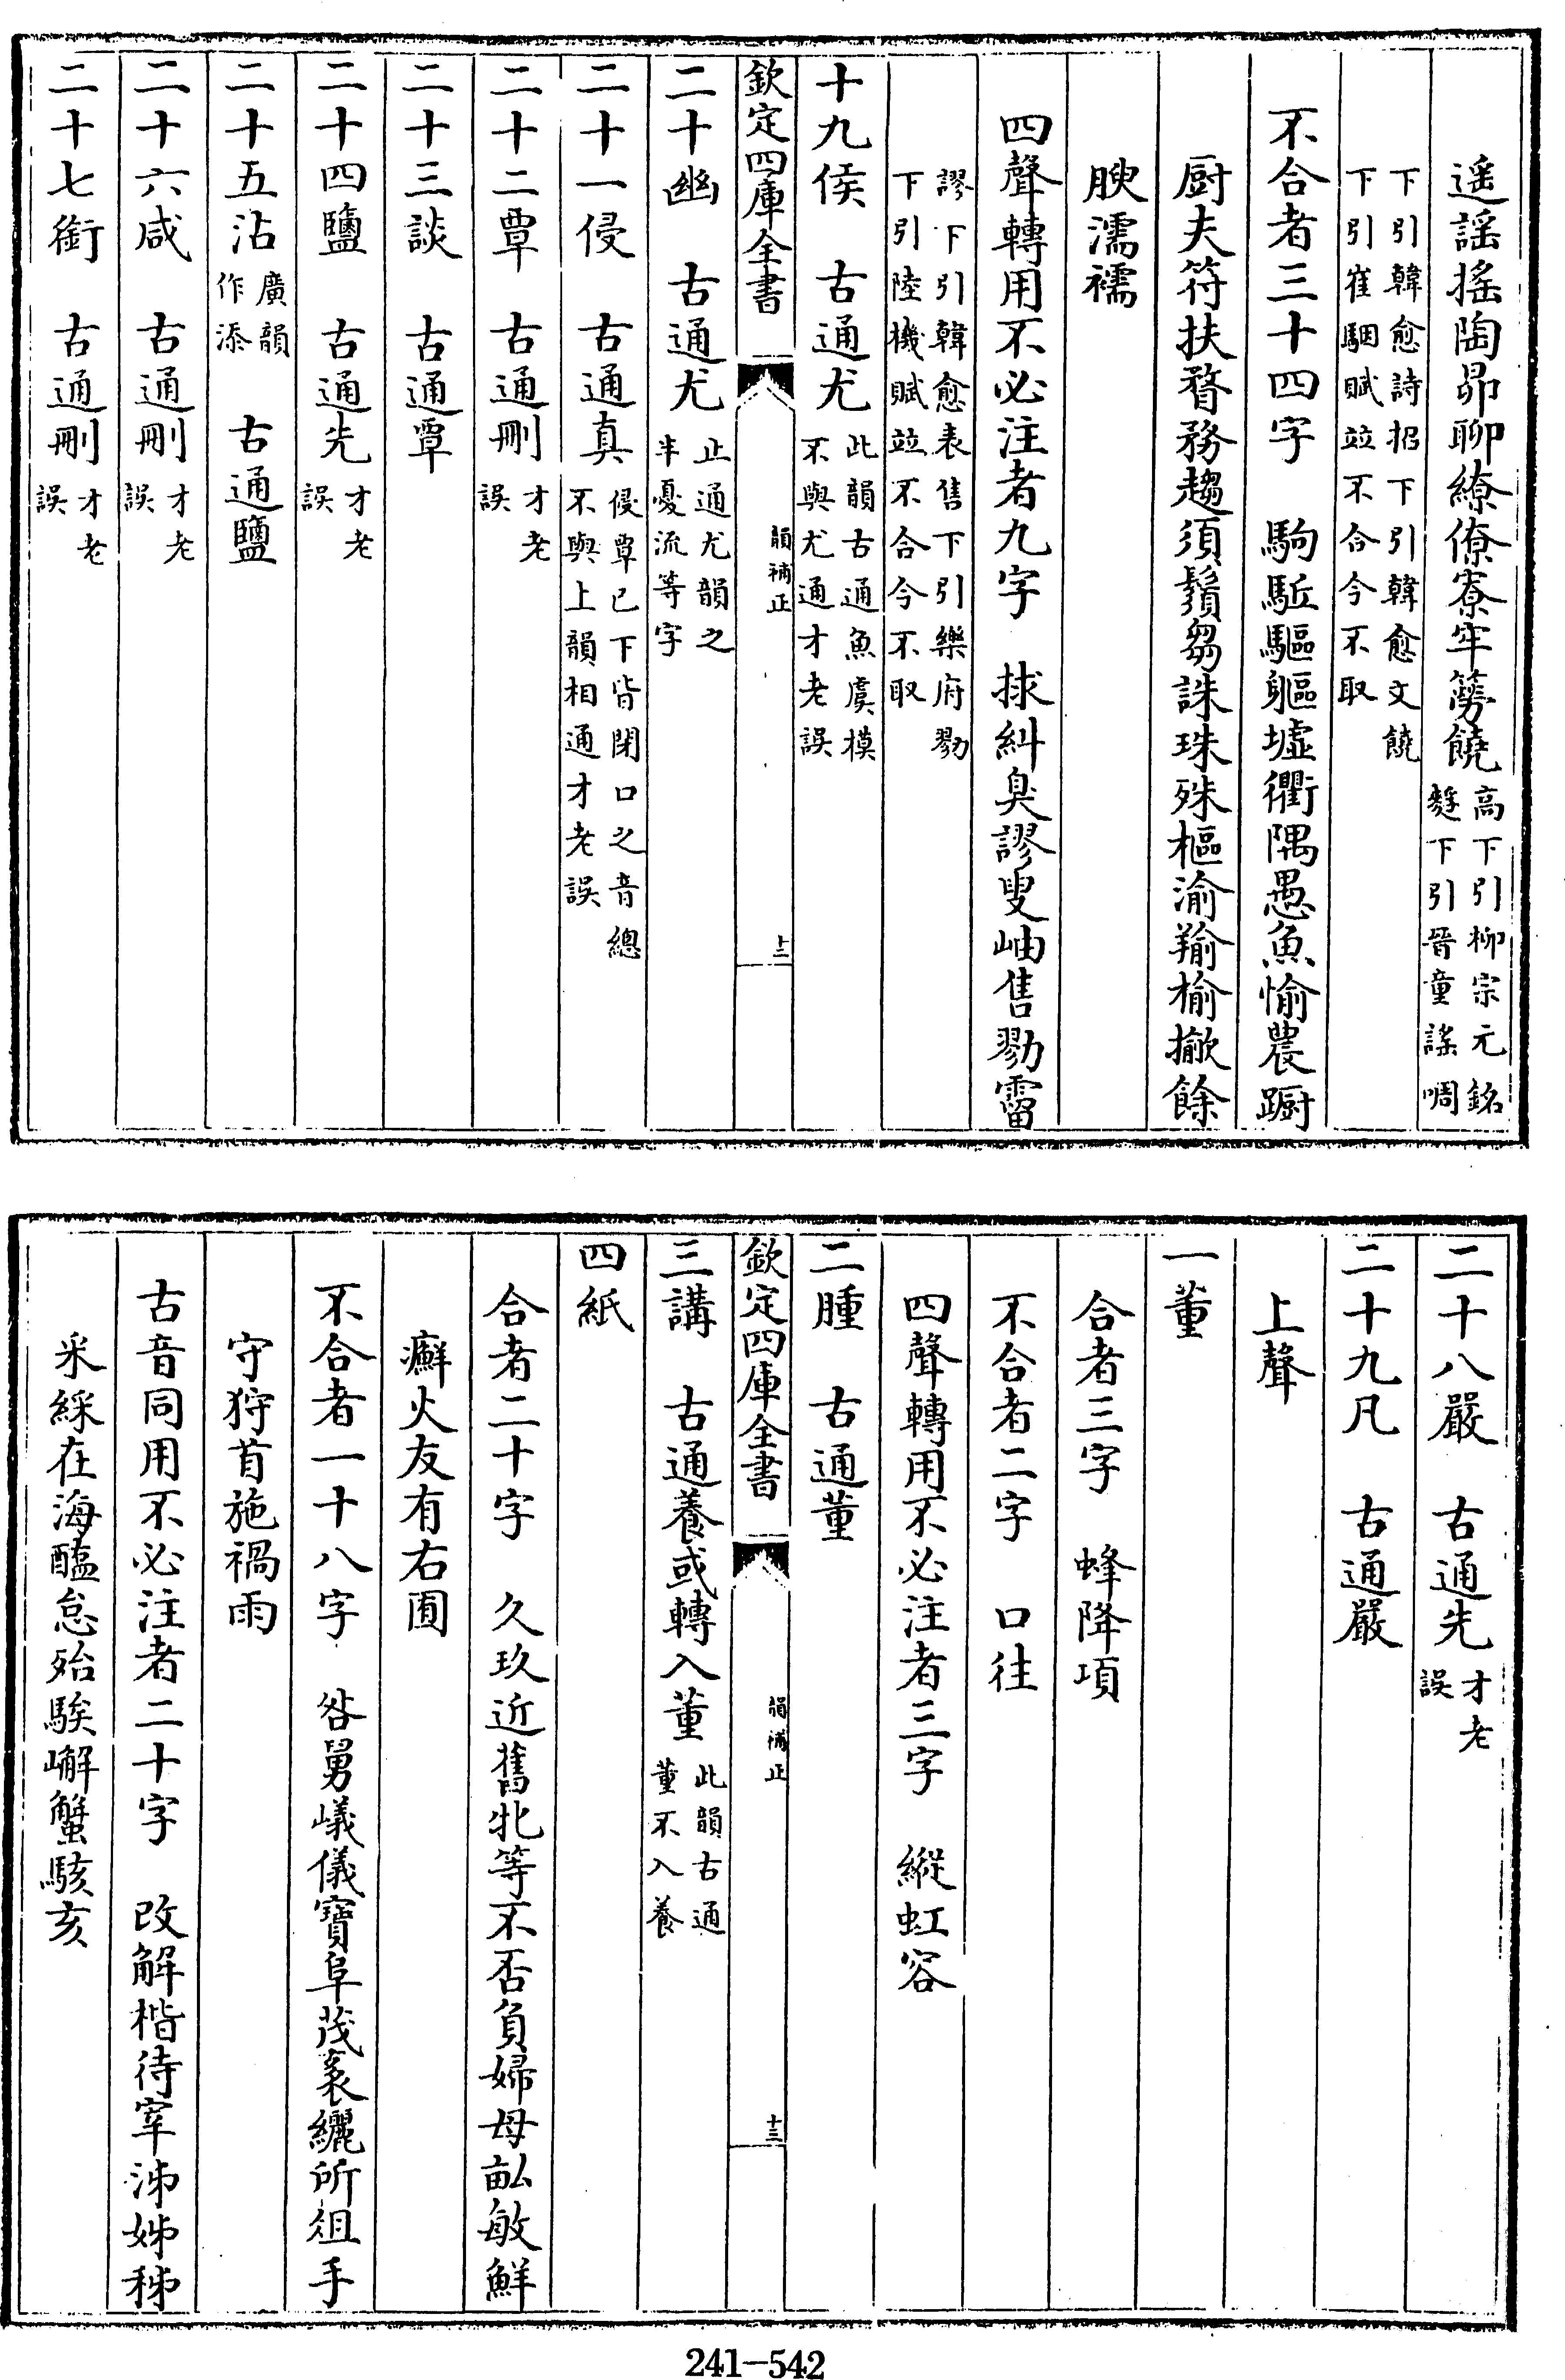 遥謡揺陶昴聊繚僚寮牢簩饒高下引柳宗元銘
䴬下引晉童謡啁
下引韓愈詩招下引韓愈文饒
下引崔駰賦竝不合今不取
不合者三十四字　駒駈驅軀墟衢隅愚魚愉農蹰
厨夫符扶瞀務趨須鬚芻誅珠殊樞渝羭榆揄餘
腴濡襦
四聲轉用不必注者九字　捄糾臭謬叟岫售勠霤
謬下引韓愈表售下引樂府勠
下引陸機賦竝不合今不取
十九侯　古通尤此韻古通魚虞模
不與尤通才老誤
欽定四庫全書
韻補正
十二
二十幽　古通尤止通尤韻之
半憂流等字
二十一侵　古通真侵覃已下皆閉口之音總
不與上韻相通才老誤
二十二覃　古通刪才老
誤
二十三談　古通覃
二十四鹽　古通先才老
誤
二十五沾廣韻
作添　古通鹽
二十六咸　古通刪才老
誤
二十七銜　古通刪才老
誤
二十八嚴　古通先才老
誤
二十九凡　古通嚴
上聲
一董
合者三字　蜂降項
不合者二字　口往
四聲轉用不必注者三字　縱虹容
二腫　古通董
欽定四庫全書
韻補正
十三
三講　古通養或轉入董此韻古通
董不入養
四紙
合者二十字　久玖近舊牝等不否負婦母畝敏鮮
癬火友有右囿
不合者一十八字　咎舅嶬儀寶阜茂袤纚所俎手
守狩首施禍雨
古音同用不必注者二十字　改解楷待宰泲姊秭
采綵在海醢怠殆騃嶰蟹駭亥
241-542